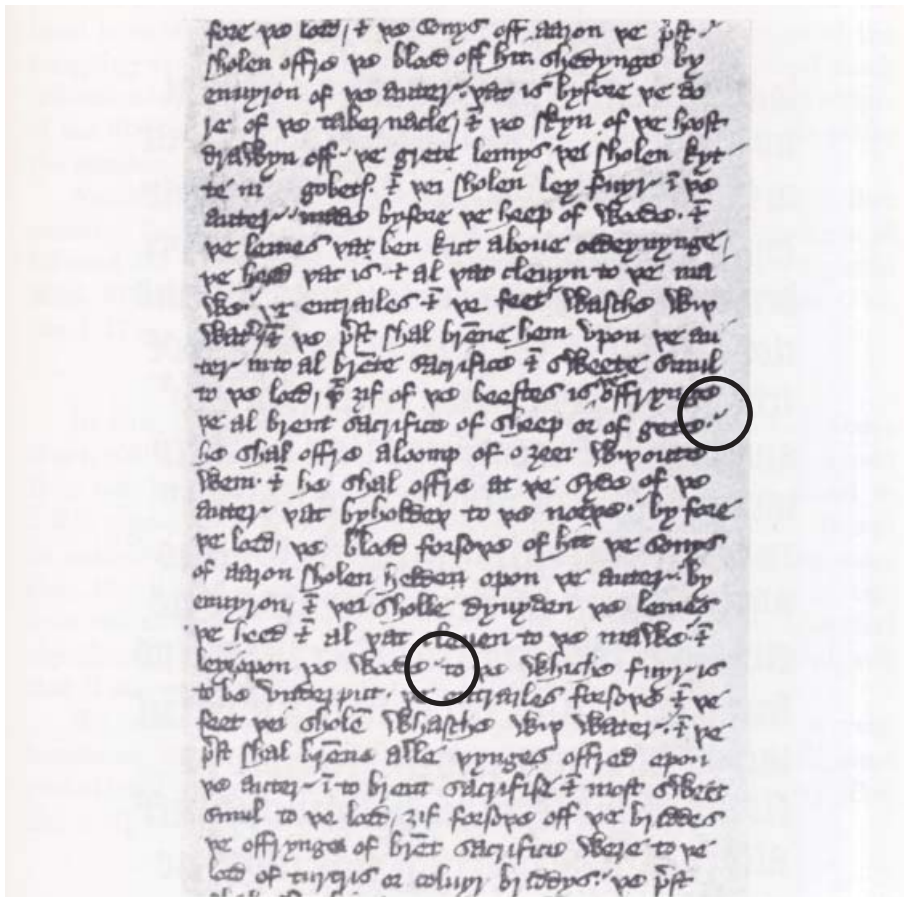 fore þe lord, & þe sonys off aaron þe p̄st
sholen offre þe blood off hit shedynge by
enuyron of þe auter, þat is byfore þe do
re of þe tabernacle, & þe skyn of þe hoost
drawyn off, þe grete lemys þei sholen kyt
te in gobetſ. & þei sholen ley fuyr ī þe
auter, byfore þe heep of wode. &
þe lemes þat ben kut above ordeynynge,
þe heed þat is & al þat cleuyn to þe ma
we. þe entrailes & þe feet wasche wiþ
wat̄, & þe p̄st shal brēne hem vpon þe au
ter in to al brēte sacrifice & sweete smul
to þe lord, & ȝif of þe beestes is offrynge
þe al brent sacrifice of sheep or of geete
he shal offre a loomp of o ȝeer wiþoute
wem. & he shal offre at þe syde of þe
auter þat byholdeþ to þe norþe. byfore
þe lord, þe blood forsoþe of hit þe sonys
of aaron sholen helden opon þe auter by
enuyron, & þei sholle dyuyden þe lemes
þe heed & al þat cleuen to þe mawe. &
leye upon þe wode to þe whiche fuyr is
to be vnder put. þe entrailes forsoþe & þe
feet þei sholē whasche wiþ water. & þe
p̄st shal brēne alle þynges offred opon
þe auter ī to brent sacrifise & most sweet
smul to þe lord, ȝif forsoþe off þe briddes
þe offrynge of brēt sacrifice were to þe
lord of turtris or coluyr briddys. þe p̄st